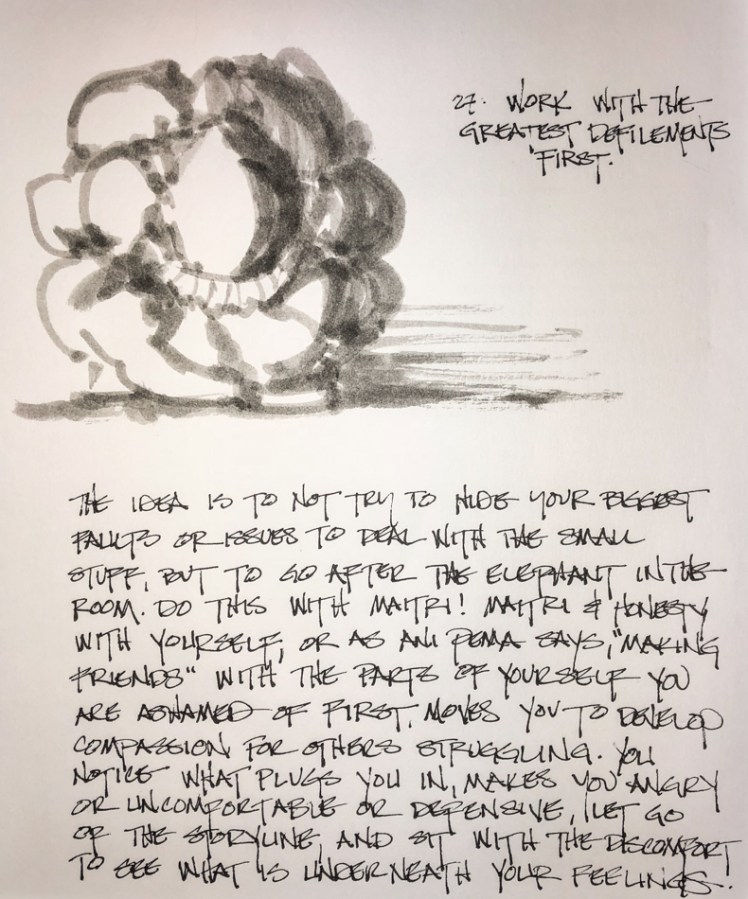 27. WORK WITH THE
GREATEST DEFILEMENTS
FIRST.
THE IDEA IS TO NOT TRY TO HIDE YOUR BIGGEST
FAULTS OR ISSUES TO DEAL WITH THE SMALL
STUFF, BUT TO GO AFTER THE ELEPHANT IN THE
ROOM. DO THIS WITH MAITRI! MAITRI & HONESTY
WITH YOURSELF, OR AS ANI PEMA SAYS, "MAKING
FRIENDS" WITH THE PARTS OF YOURSELF YOU
ARE ASHAMED OF FIRST, MOVES YOU TO DEVELOP
COMPASSION FOR OTHERS STRUGGLING. YOU
NOTICE WHAT PLUGS YOU IN, MAKES YOU ANGRY
OR UNCOMFORTABLE OR DEFENSIVE, LET GO
OF THE STORYLINE, AND SIT WITH THE DISCOMFORT
TO SEE WHAT IS UNDERNEATH YOUR FEELINGS!